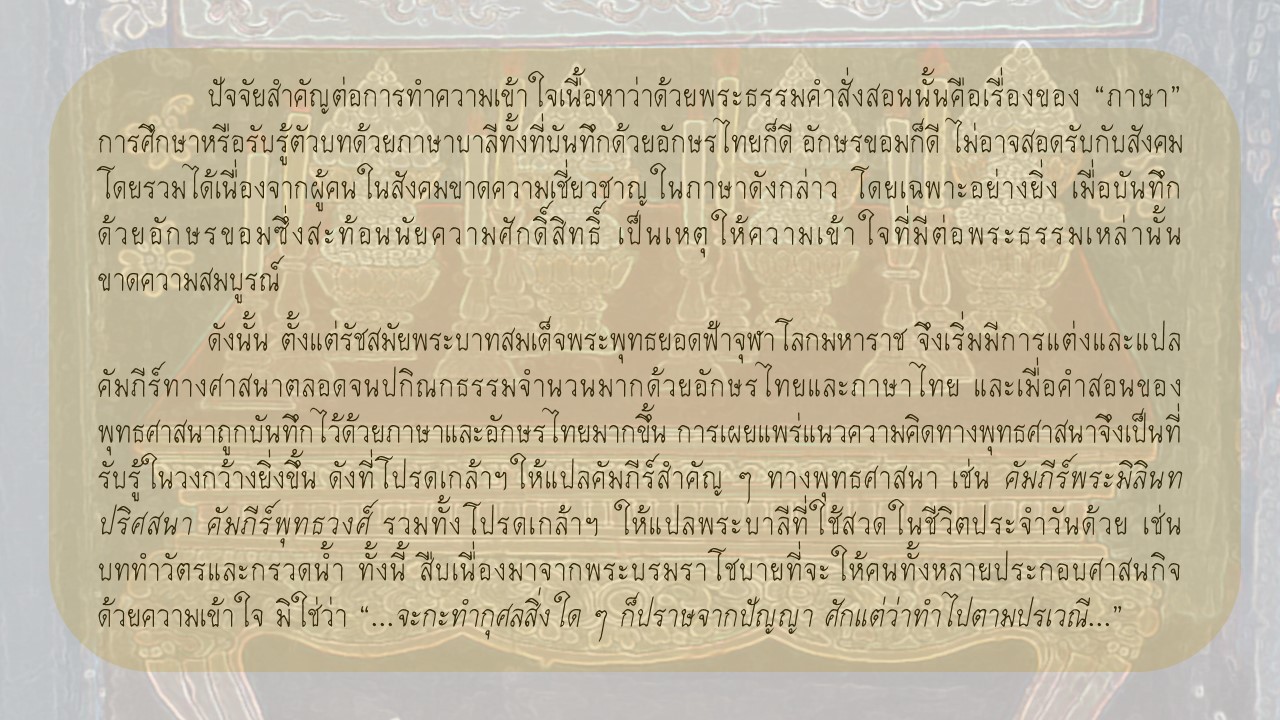 ปัจจัยสำคัญต่อการทำความเข้าใจเนื้อหาว่าด้วยพระธรรมคำสั่งสอนนั้นคือเรื่องของ “ภาษา”
การศึกษาหรือรับรู้ตัวบทด้วยภาษาบาลีทั้งที่บันทึกด้วยอักษรไทยก็ดี อักษรขอมก็ดี ไม่อาจสอดรับกับสังคม
โดยรวมได้เนื่องจากผู้คนในสังคมขาดความเชี่ยวชาญในภาษาดังกล่าว โดยเฉพาะอย่างยิ่ง เมื่อบันทึก
ด้วยอักษรขอมซึ่งสะท้อนนัยความศักดิ์สิทธิ์ เป็นเหตุให้ความเข้าใจที่มีต่อพระธรรมเหล่านั้น
ขาดความสมบูรณ์
ดังนั้น ตั้งแต่รัชสมัยพระบาทสมเด็จพระพุทธยอดฟ้าจุฬาโลกมหาราช จึงเริ่มมีการแต่งและแปล
คัมภีร์ทางศาสนาตลอดจนปกิณกธรรมจำนวนมากด้วยอักษรไทยและภาษาไทย และเมื่อคำสอนของ
พุทธศาสนาถูกบันทึกไว้ด้วยภาษาและอักษรไทยมากขึ้น การเผยแพร่แนวความคิดทางพุทธศาสนาจึงเป็นที่
รับรู้ในวงกว้างยิ่งขึ้น ดังที่โปรดเกล้าฯให้แปลคัมภีร์สำคัญ ๆ ทางพุทธศาสนา เช่น คัมภีร์พระมิลินท
ปริศสนา คัมภีร์พุทธวงศ์ รวมทั้งโปรดเกล้าฯ ให้แปลพระบาลีที่ใช้สวดในชีวิตประจำวันด้วย เช่น
บททำวัตรและกรวดน้ำ ทั้งนี้ สืบเนื่องมาจากพระบรมราโชบายที่จะให้คนทั้งหลายประกอบศาสนกิจ
ด้วยความเข้าใจ มิใช่ว่า “...จะกะทำกุศลสิ่งใด ๆ ก็ปราษจากปัญญา ศักแต่ว่าทำไปตามปรเวณี...”